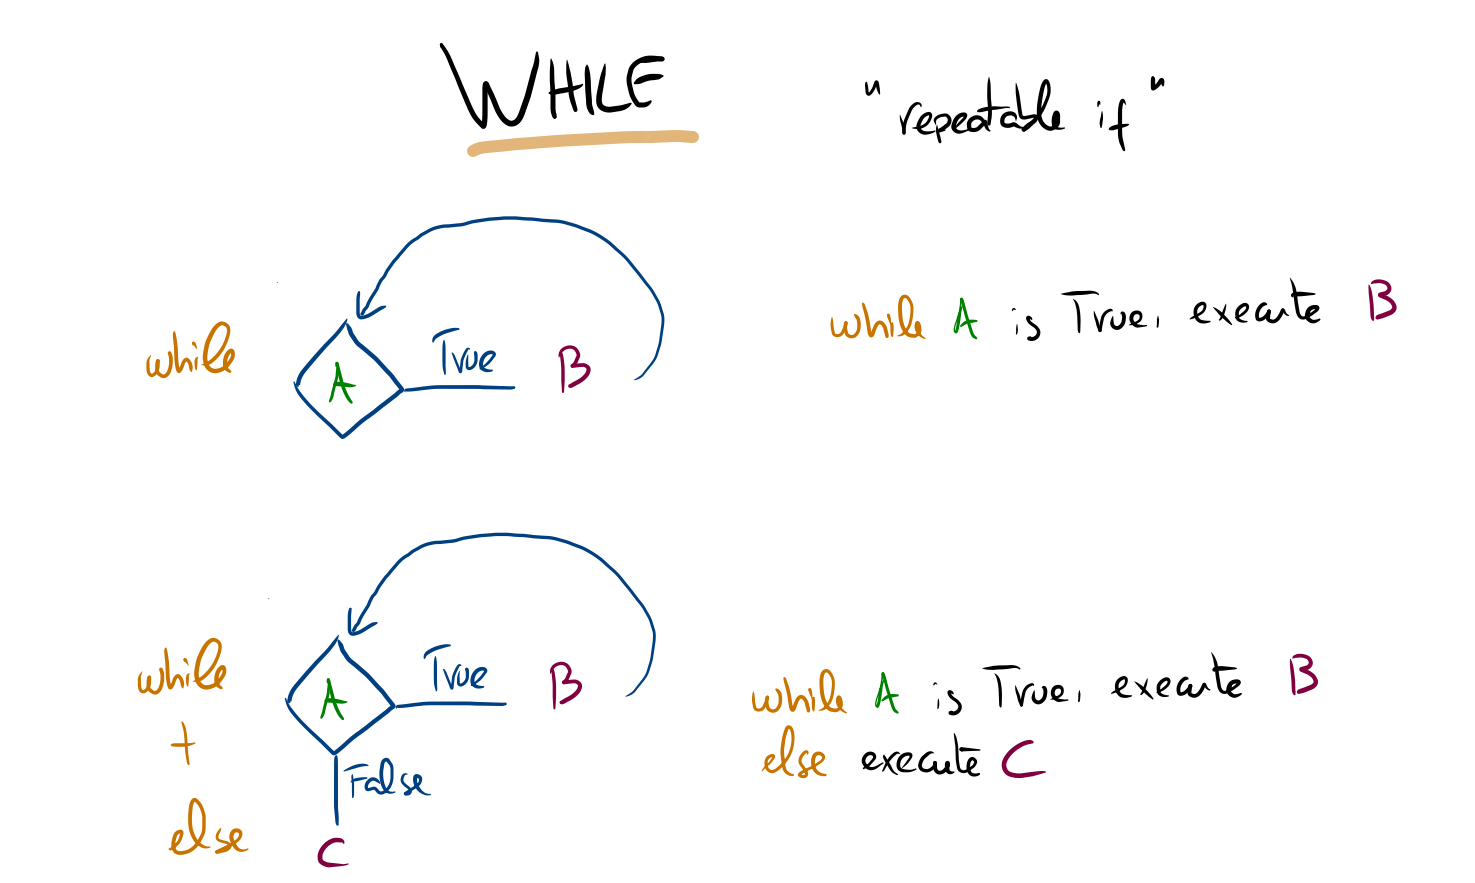 WHILE
"repeatable if"
while
A
True
B
while A is True, execute B
while
+
else
A
True
B
False
C
while A is True, execute B
else execute C